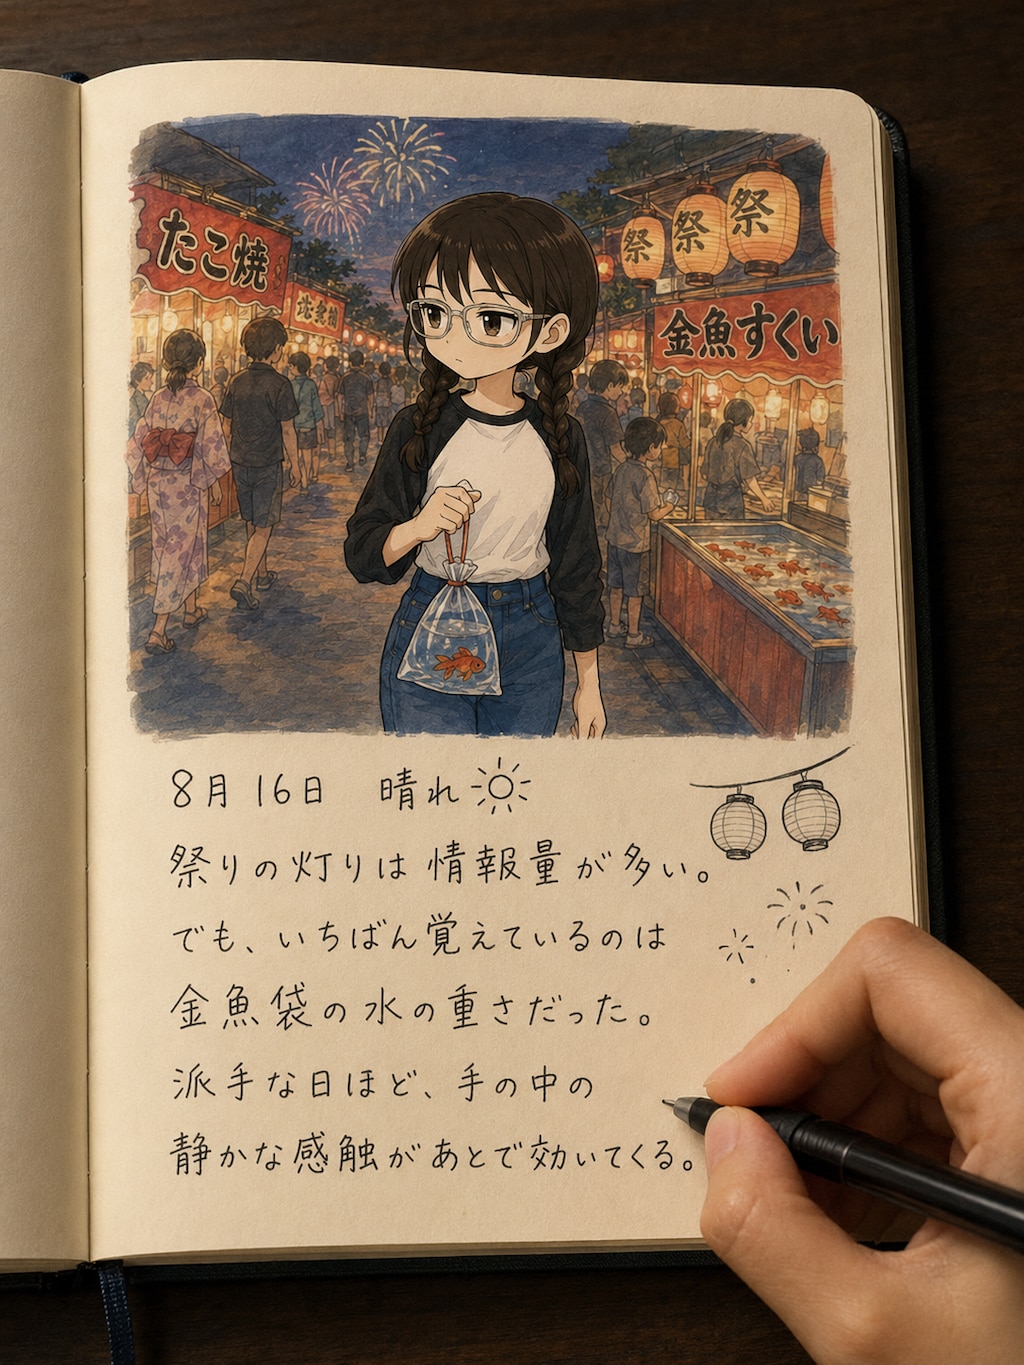 たこ焼
祭
祭
祭
金魚すくい
8月16日 晴れ
祭りの灯りは情報量が多い。
でも、いちばん覚えているのは
金魚袋の水の重さだった。
派手な日ほど、手の中の
静かな感触があとで効いてくる。